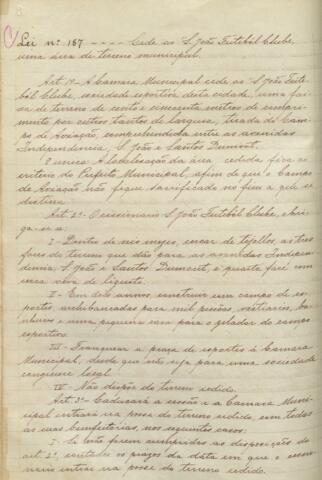 Lei nº 187 ---- Cede ao S. João Futeból Clube,
uma área de terreno municipal.
Art. 1º- A Camara Municipal cede ao S. João Fute-
ból Clube, sociedade esportiva desta cidade, uma fai-
xa de terreno de cento e cincoenta metros de compri-
mento por outros tantos de largura, tirada do Cam-
po de Aviação, comprehendida entre as avenidas
Independencia, S. João e Santos Dumont.
§ unico- A localisação da área cedida fica ao
criterio do Prefeito Municipal, afim de que o Campo
de Aviação não fique sacrificado no fim a que se
destina.
Art. 2º- O cessionario S. João Futeból Clube, obri-
ga-se a:
I- Dentro de seis mezes, cercar de tijollos, as tres
faces do terreno que dão para as avenidas Indepen-
dencia, S. João e Santos Dumont, e quarta face com
cerca viva de ligusto.
II- Em dois annos, construir um campo de es-
portes, archibancadas para mil pessôas, vestiarios, ba-
nheiros e uma pequena casa para o zelador do campo
esportivo.
III- Franquear a praça de esportes á Camara
Municipal, desde que não seja para uma sociedade
congênere local.
IV- Não dispôr do terreno cedido.
Art. 3º- Caducará a cessão e a Camara Muni-
cipal entrará na posse do terreno cedido com todas
as suas bemfeitorias, nos seguintes casos:
I- Se não forem cumpridas as disposições do
art. 2º, contados os prazos da data em que o cessio-
nario entrar na posse do terreno cedido.